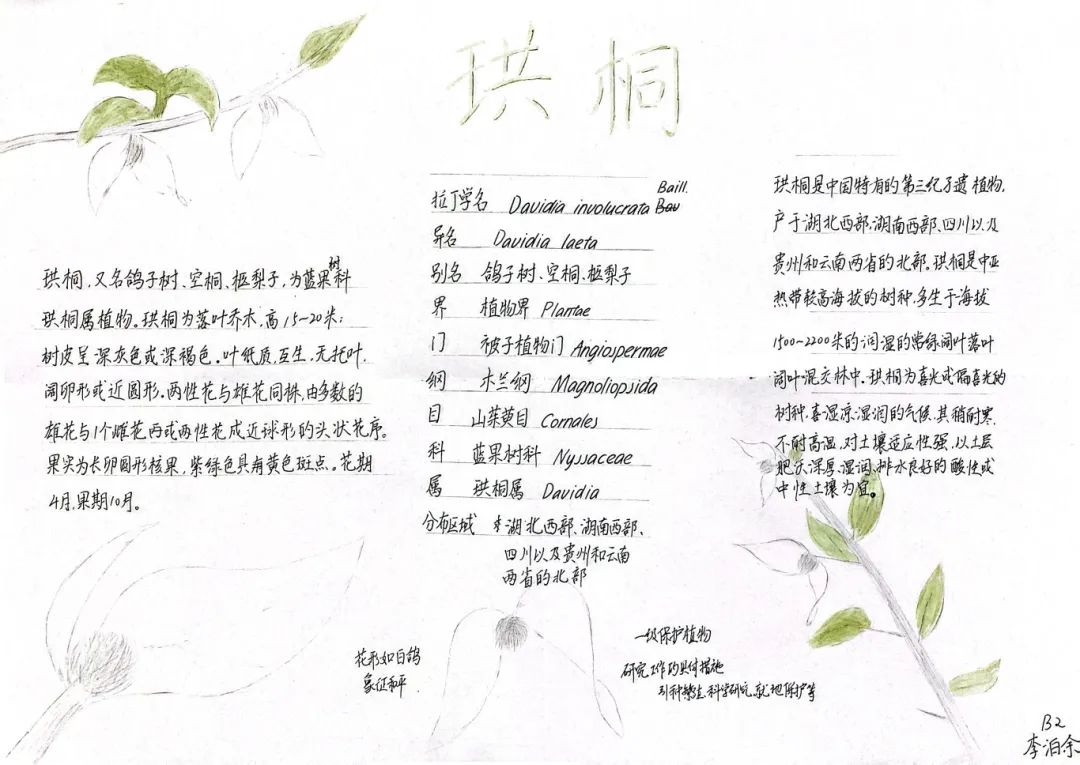 珙桐
珙桐,又名鸽子树、空桐、柩梨子,为蓝果树科
珙桐属植物。珙桐为落叶乔木,高15~20米;
树皮呈深灰色或深褐色。叶纸质,互生,无托叶,
阔卵形或近圆形。两性花与雄花同株,由多数的
雄花与1个雌花两或两性花成近球形的头状花序。
果实为长卵圆形核果,紫绿色具有黄色斑点。花期
4月,果期10月。
拉丁学名 Davidia involucrata Baill.
异名 Davidia laeta
别名 鸽子树、空桐、柩梨子
界 植物界 Plantae
门 被子植物门 Angiospermae
纲 木兰纲 Magnoliopsida
目 山茱萸目 Cornales
科 蓝果树科 Nyssaceae
属 珙桐属 Davidia
分布区域 湖北西部、湖南西部、
四川以及贵州和云南
两省的北部
珙桐是中国特有的第三纪孑遗植物,
产于湖北西部、湖南西部、四川以及
贵州和云南两省的北部。珙桐是中亚
热带较高海拔的树种,多生于海拔
1500~2200米的润湿的常绿阔叶落叶
阔叶混交林中。珙桐为喜光或偏喜光的
树种,喜湿凉湿润的气候,其稍耐寒,
不耐高温,对土壤适应性强,以土层
肥沃深厚、湿润、排水良好的酸性或
中性土壤为宜。
花形如白鸽
象征和平
一级保护植物
研究工作的具体措施
引种繁殖,科学研究,就地保护等
B2
李泊余